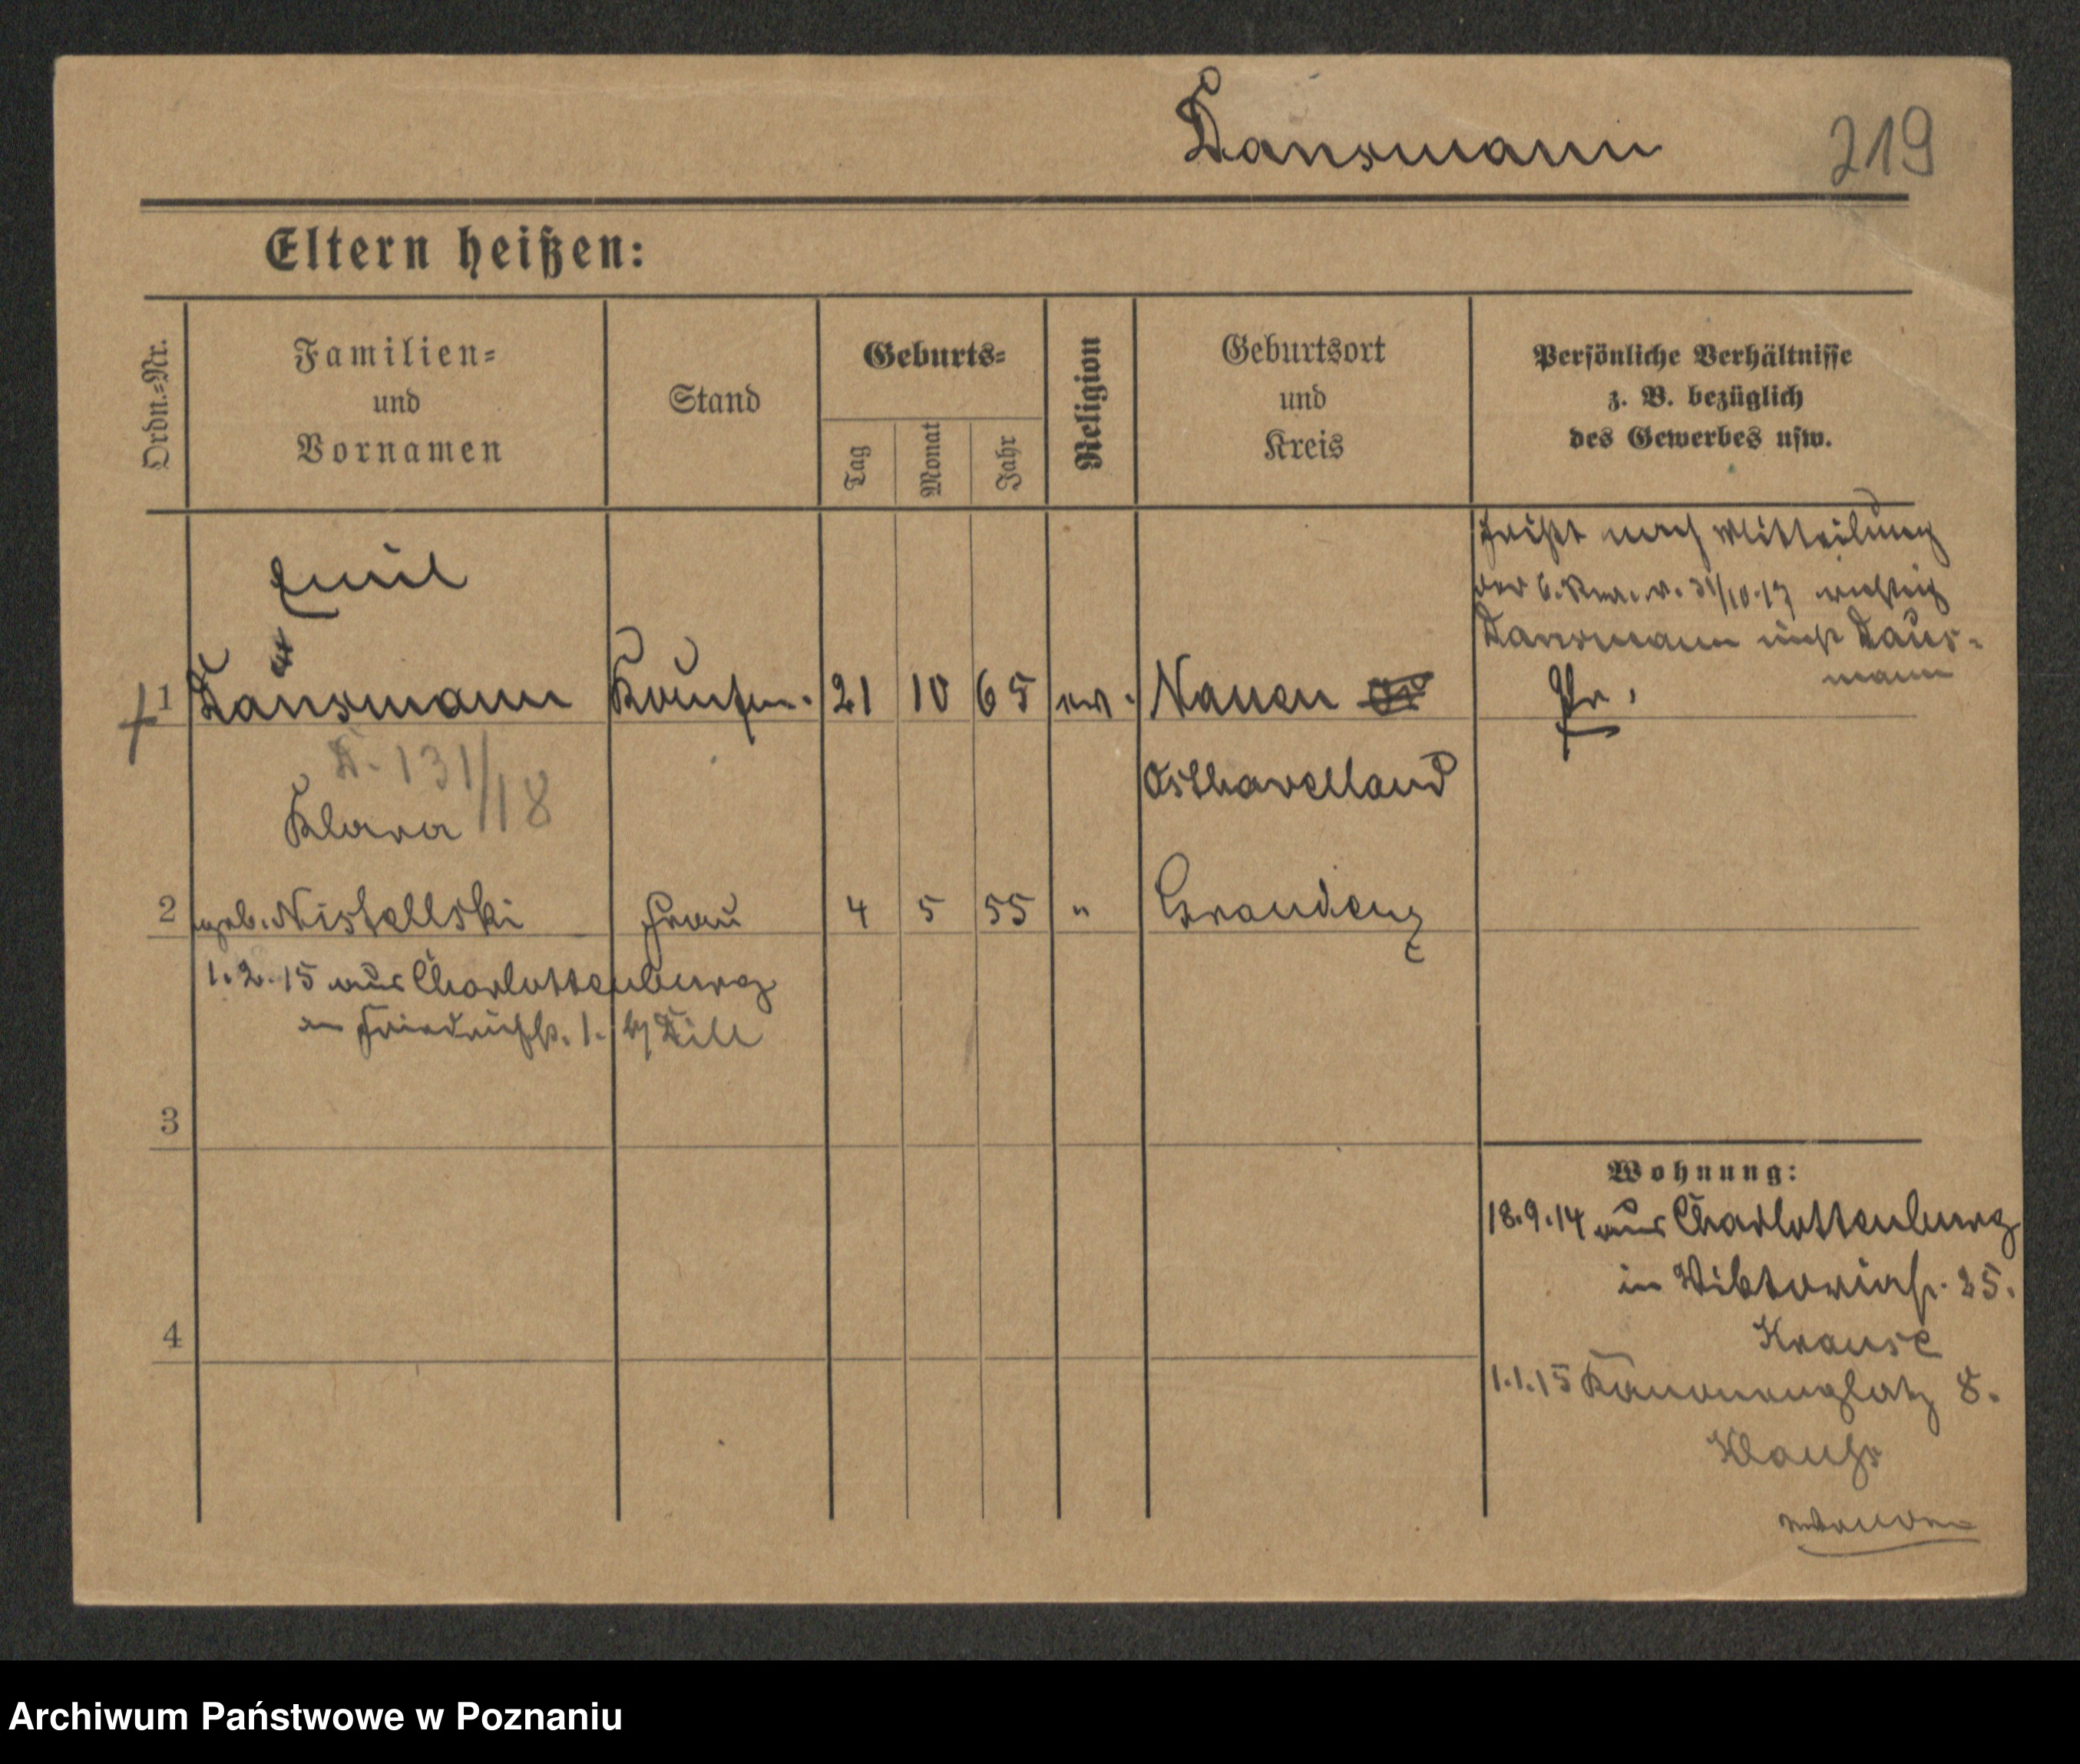 Dansmann 219
Eltern heißen:
Ordn.=Nr.
Familien=
und
Vornamen
Stand
Geburts=
Tag
Monat
Jahr
Religion
Geburtsort
und
Kreis
Persönliche Verhältnisse
z. B. bezüglich
des Gewerbes usw.
Emil
1 Dansmann Kaufm. 21 10 65 ev. Nauen
Osthavelland
heißt nach Mitteilung
der 31/10.17 richtig
Dansmann nicht Daus-
mann
D. 131/18
Klara
2 geb. Nistellski Frau 4 5 55 " Graudenz
1.2.15 aus Charlottenburg
Friedrichstr. 1. Dill
3
4
Wohnung:
18.9.14 aus Charlottenburg
in Viktoriastr. 25.
Krause
1.1.15 Kanonenplatz 8.